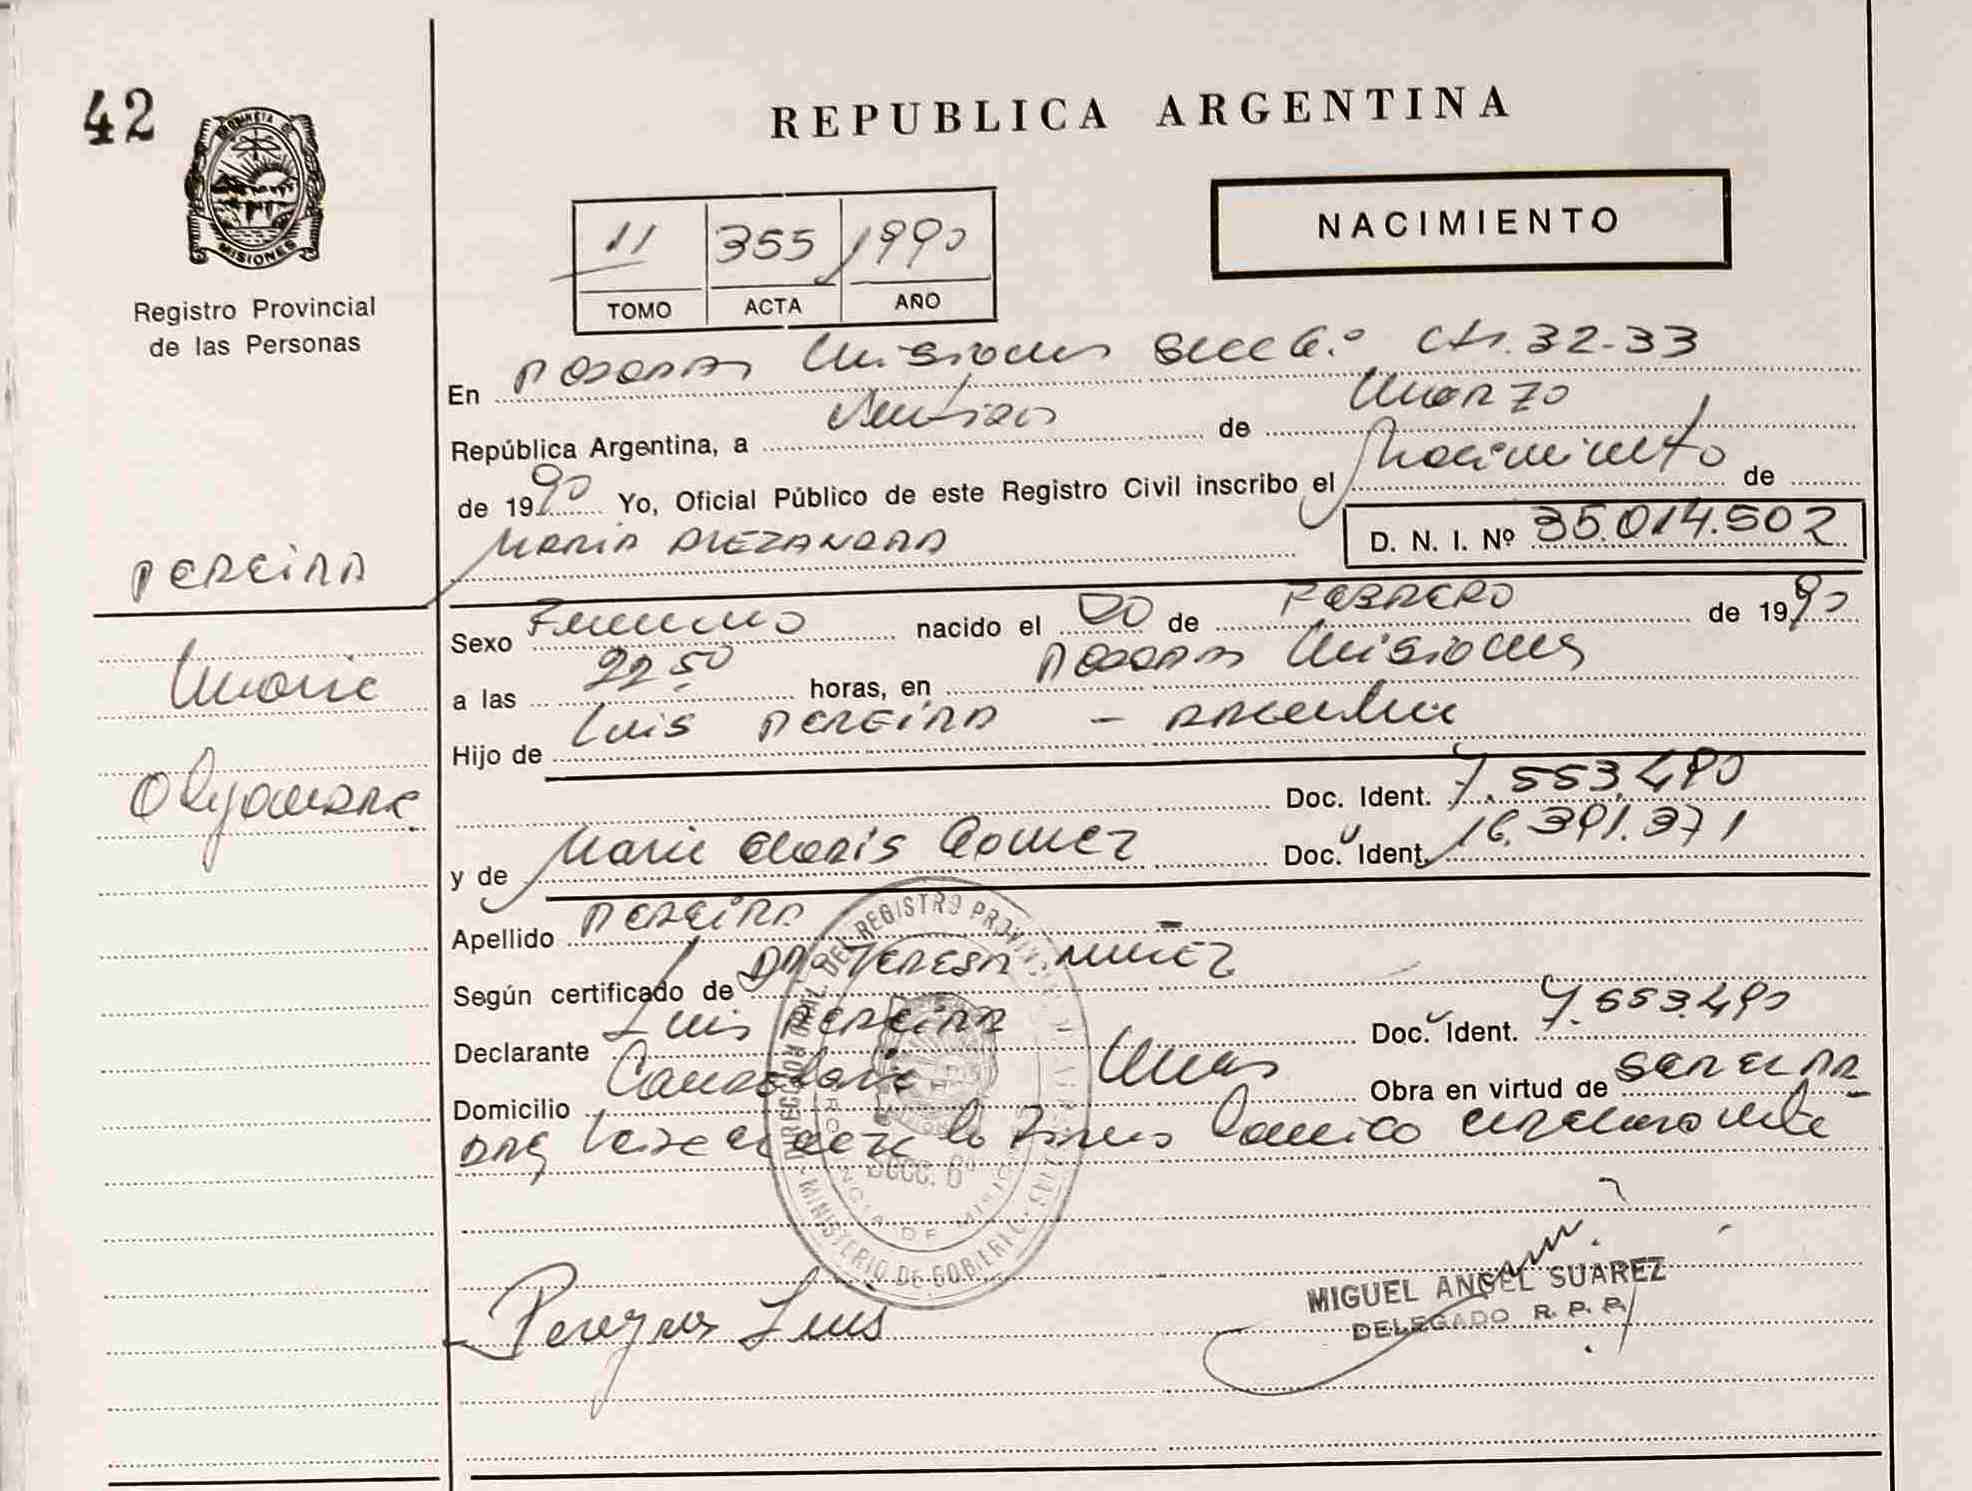 42
REPUBLICA ARGENTINA
NACIMIENTO
PROVINCIA DE
MISIONES
Registro Provincial
de las Personas
11 355 1990
TOMO ACTA AÑO
En Posadas Misiones Secc 6.º Ctr. 32-33
República Argentina, a de Marzo
de 1990 Yo, Oficial Público de este Registro Civil inscribo el Nacimiento de
MARIA ALEZANDRA D. N. I. Nº 35.014.502
PEREIRA
Maria
Alejandra
Sexo Femenino nacido el 20 de FEBRERO de 1990
a las 22,50 horas, en Posadas Misiones
Hijo de Luis PEREIRA - Argentina
Doc. Ident. 7.553.490
y de Maria Gomez Doc. Ident. 16.391.371
Apellido PEREIRA
Según certificado de DRA TERESA NUÑEZ
Declarante Luis PEREIRA Doc. Ident. 7.553.490
Domicilio Candelaria Mnes Obra en virtud de SER EL PA
DRE
SECC. 6º
MINISTERIO DE GOBIERNO
Luis
MIGUEL ANGEL SUAREZ
DELEGADO R. P. P.